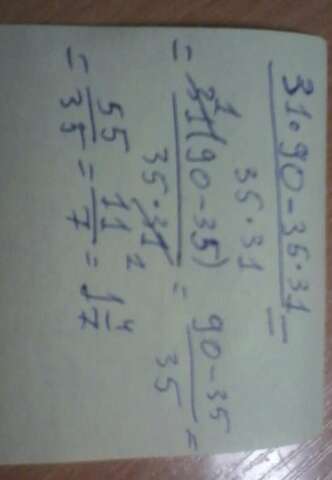 31·90-35·31
35·31 =
= 31(90-35)
35·31 = 90-35
35 =
= 55
35 = 11
7 = 1 4
7